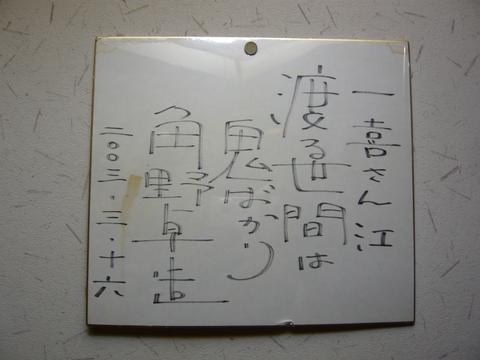 一喜さん江
渡る世間は
鬼ばかり
角野卓造
二〇〇三・三・十六